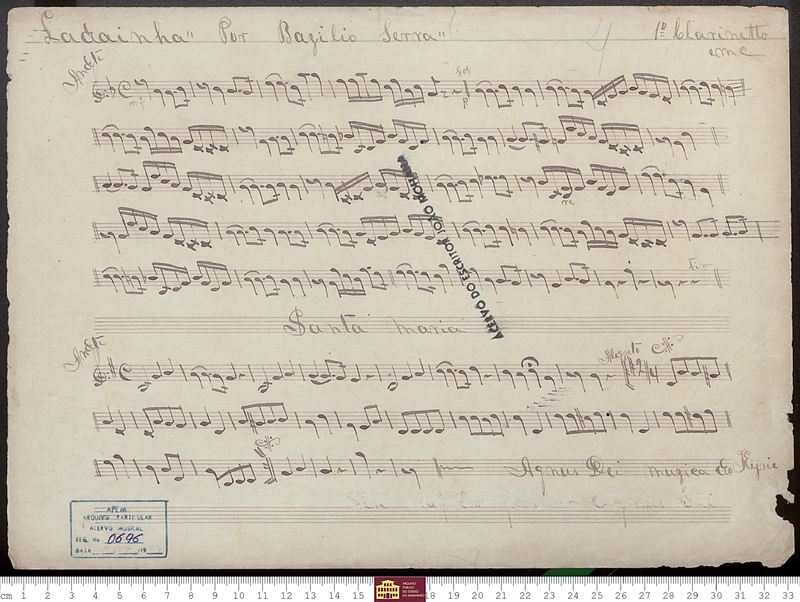 Ladainha" Por Bazilio Serra" 1º Clarinetto
em C
Andte
mf
p
ACERVO DO ESCRITOR JOÃO MOHANA
Fim
Santa Maria
Andte
Allegretto
Agnus Dei musica do Kyrie
APEM
ARQUIVO PARTICULAR
ACERVO MUSICAL
REG. No 0696
DATA 19
cm 1 2 3 4 5 6 7 8 9 10 11 12 13 14 15 18 19 20 21 22 23 24 25 26 27 28 29 30 31 32 33
ARQUIVO
PÚBLICO
DO ESTADO
DO MARANHÃO